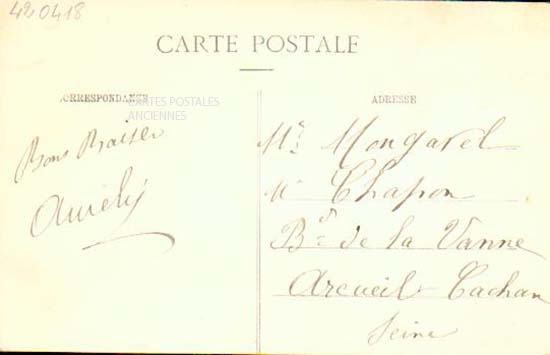 420418
CARTE POSTALE
CORRESPONDANCE
CARTES POSTALES
ANCIENNES
Bons Baiser
Aurély
ADRESSE
Mr. Mongarel
Mn Chapon
Bd de la Vanne
Arcueil-Cachan
Seine